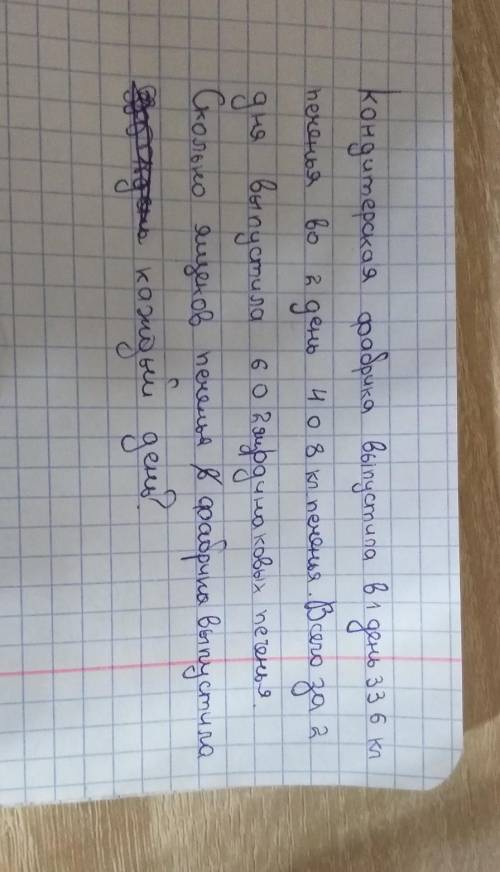 Кондитерская фабрика выпустила в 1 день 336 кг
печенья во 2 день 408 кг печенья. Всего за 2
дня выпустила 6 0 2 одинаковых печенья.
Сколько ящиков печенья фабрика выпустила
каждый день?